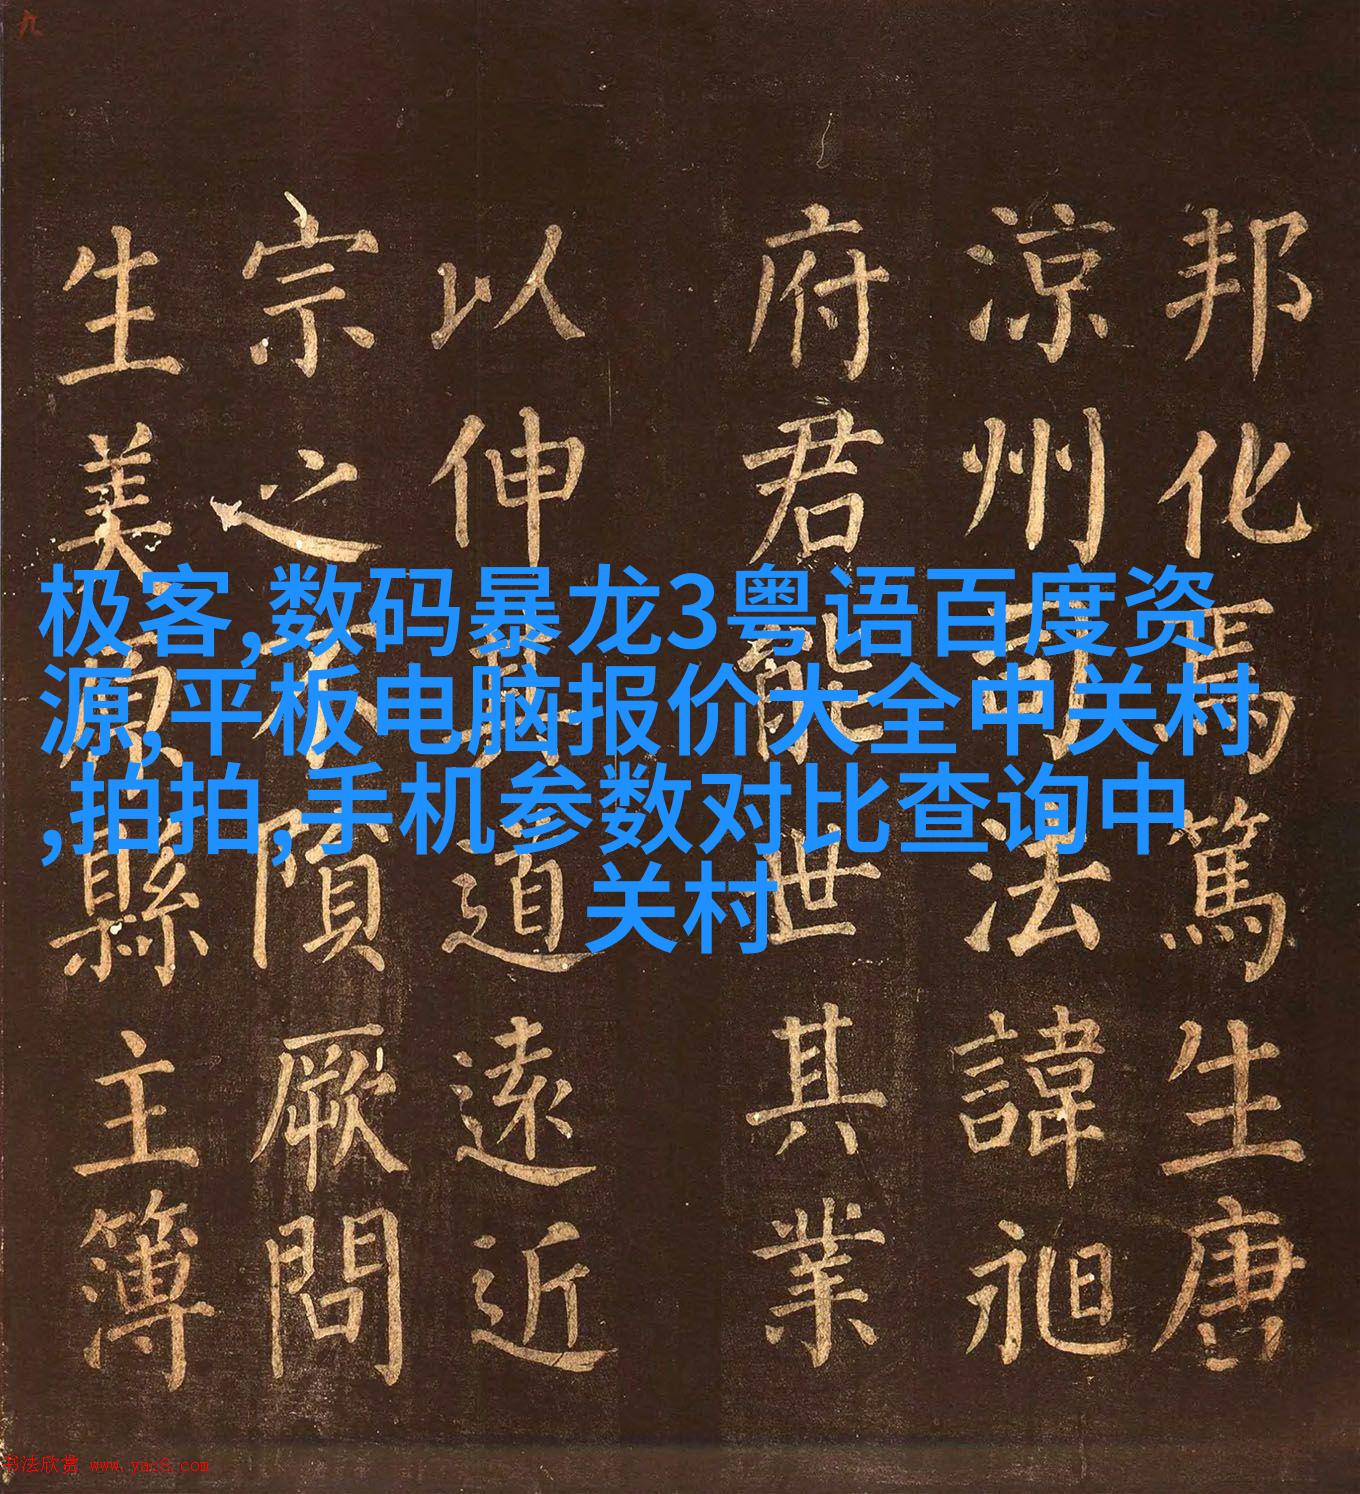 九
邦化焉篤生唐
涼州司法諱昶
府君能世其業
以伸道遠近
宗之不隕厥問
生美原縣主簿
极客,数码暴龙3粤语百度资
源,平板电脑报价大全中关村
,拍拍,手机参数对比查询中
关村
书法欣赏 www.yac8.com